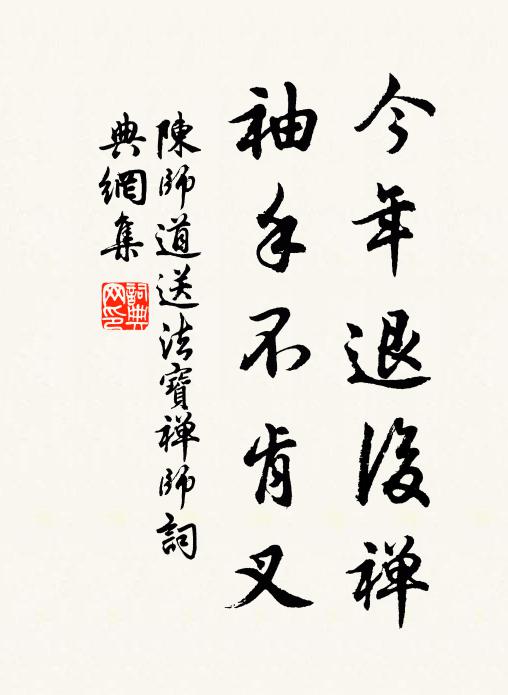 今年退後禅
袖手不肯叉
陳師道送法寶禅師詞
典網集
詞典网印